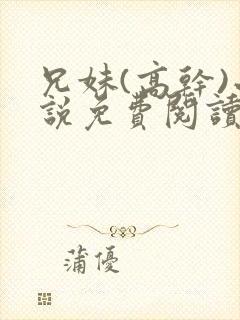 兄妹(高幹)
說免費閱讀
蒲優